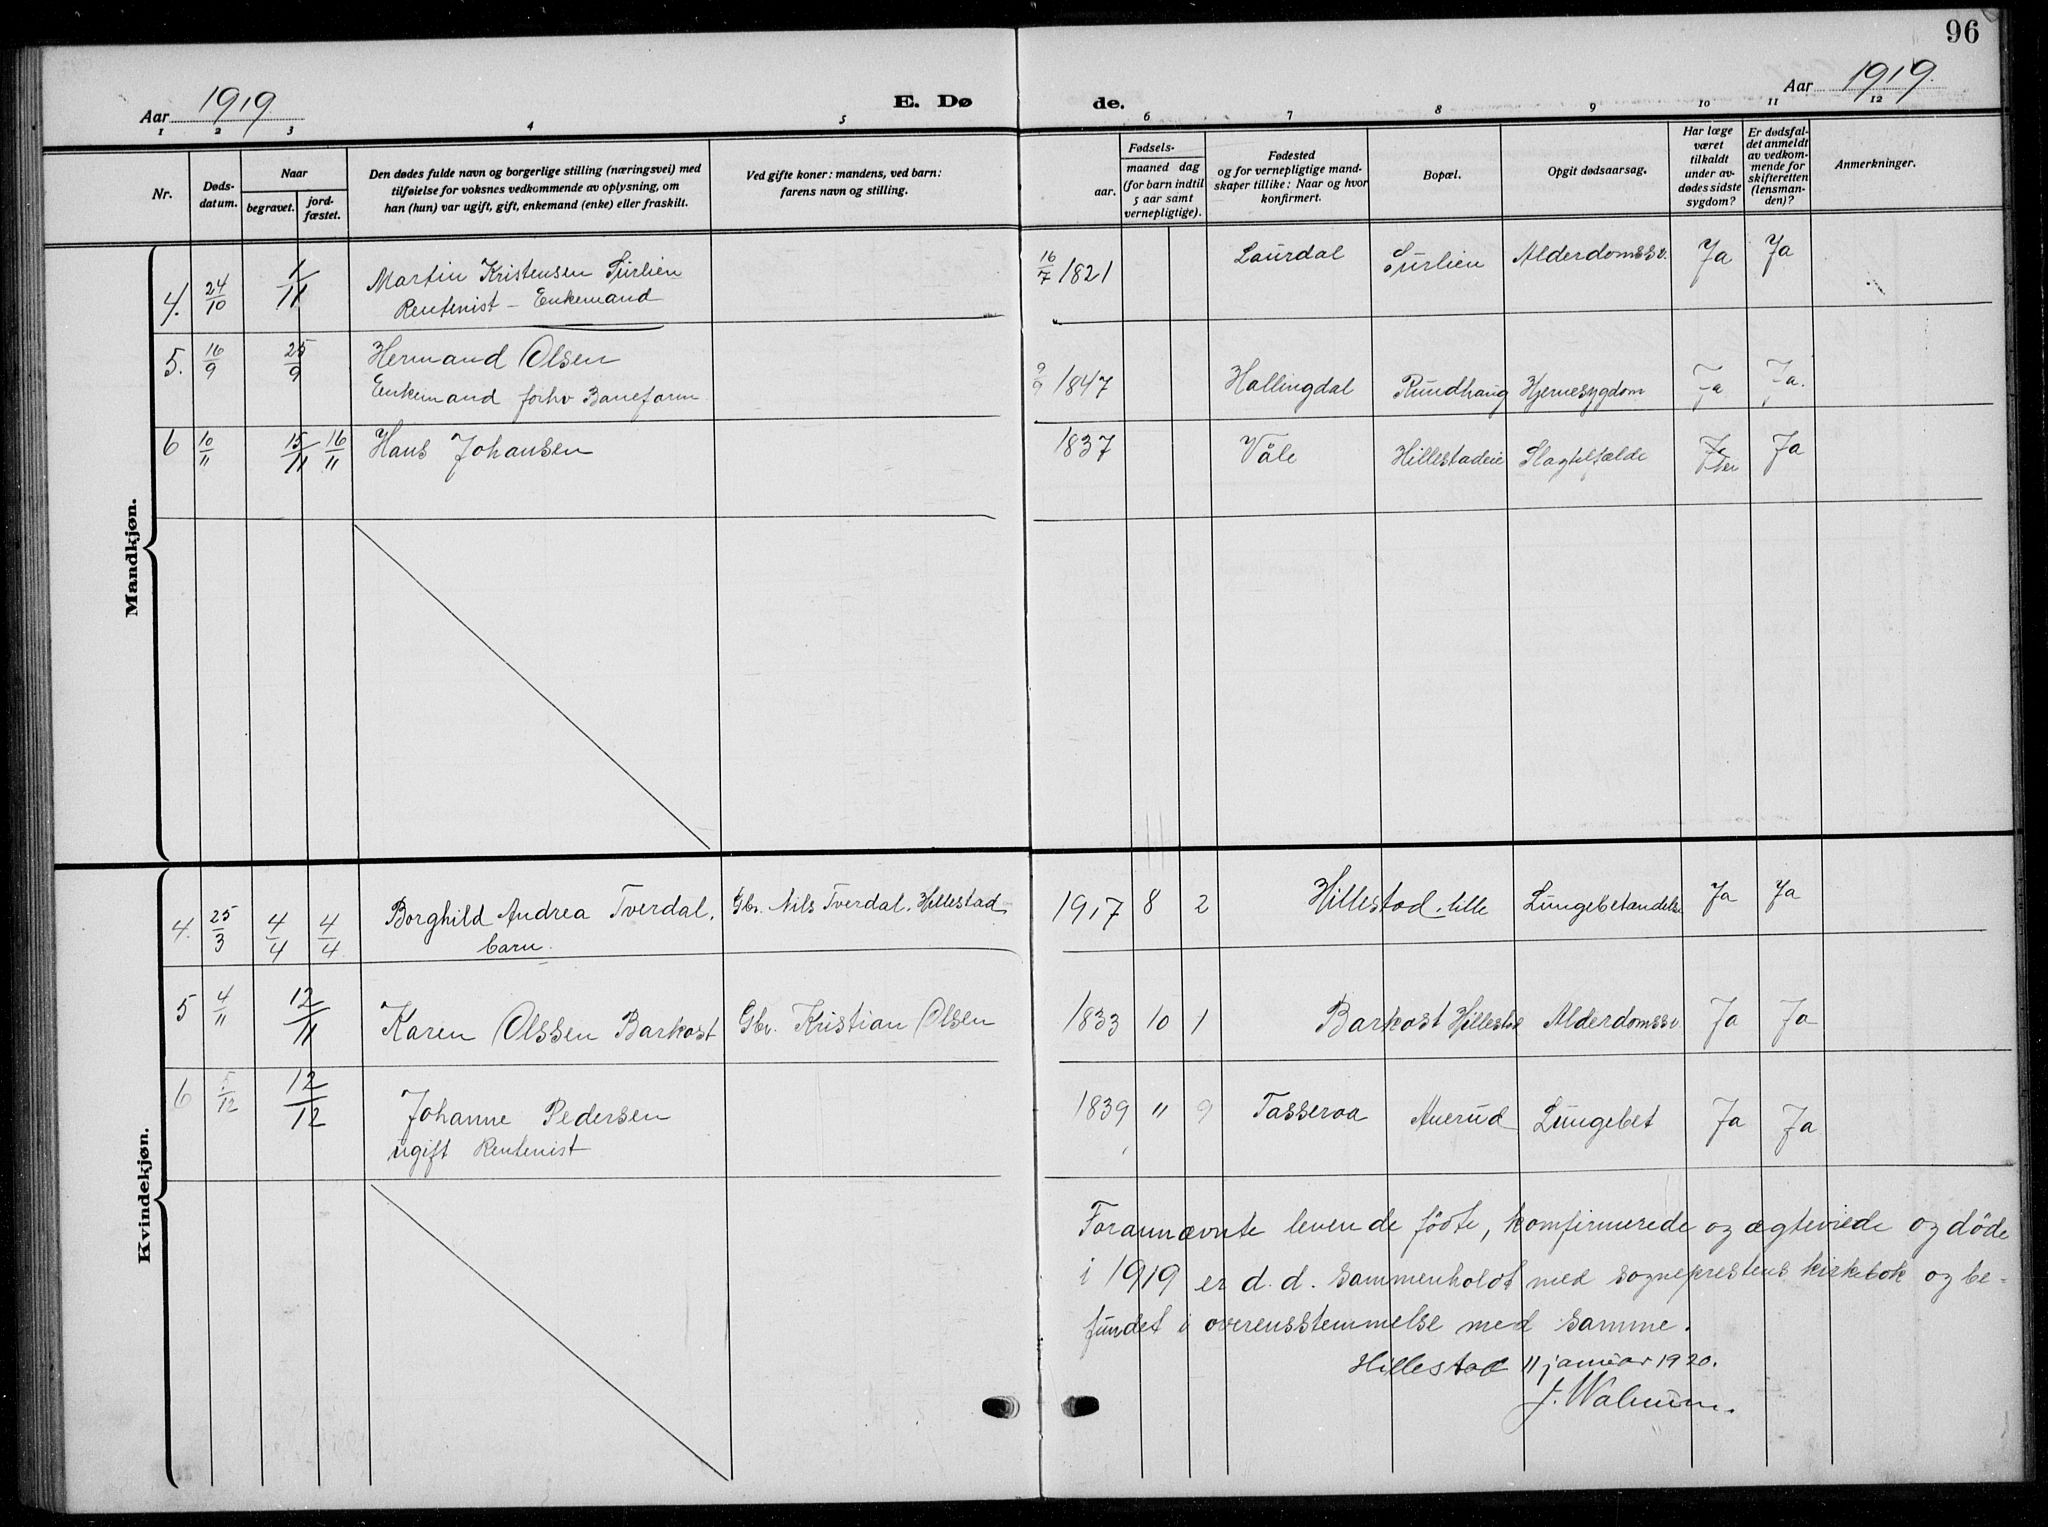 96
Aar 1919 E. Dø de. Aar 1919.
1 2 3 4 5 6 7 8 9 10 11 12
Nr.
Døds-
datum.
Naar
begravet.
jord-
fæstet.
Den dødes fulde navn og borgerlige stilling (næringsvei) med
tilføielse for voksnes vedkommende av oplysning, om
han (hun) var ugift, gift, enkemand (enke) eller fraskilt.
Ved gifte koner: mandens, ved barn:
farens navn og stilling.
Fødsels-
aar.
maaned dag
(for barn indtil
5 aar samt
vernepligtige).
Fødested
og for vernepligtige mand-
skaper tillike: Naar og hvor
konfirmert.
Bopæl.
Opgit dødsaarsag.
Har læge
været
tilkaldt
under av-
dødes sidste
sygdom?
Er dødsfal-
det anmeldt
av vedkom-
mende for
skifteretten
(lensman-
den)?
Anmerkninger.
Mandkjøn.
4. 24/10 1/11 Martin Kristensen Surlien 16/7 1821 Laurdal Surlien Alderdomssv. Ja Ja
Rentenist - Enkemand
5. 16/9 25/9 Hermand Olsen
Enkemand forhv Baneform 1847 Hallingdal Rundhaug Hjernesygdom Ja Ja.
6 10/11 15/11 16/11 Hans Johansen 1837 Våle Hillestadeie Slagtilfælde Ja
Kvindekjøn.
4. 25/3 4/4 4/4 Borghild Andrea Tverdal, Gbr. Nils Tverdal. Hillestad 1917 8 2 Hillestad. lille Lungebetændelse Ja Ja
barn.
5 4/11 12/11 Karen Olssen Barkost Gbr. Kristian Olsen 1833 10 1 Barkost Hillestad Alderdomssv Ja Ja
6 5/12 12/12 Johanne Pedersen 1839 " 9 Tasseroa Auerud Lungebet Ja Ja
ugift Rentenist
Forannævnte levende födte, komfirmerede og ægteviede og döde
i 1919 er d.d. sammenholdt med sogneprestens kirkebok og be-
fundet i overensstemmelse med samme.
Hillestad 11 januar 1920.
J. Walnum.